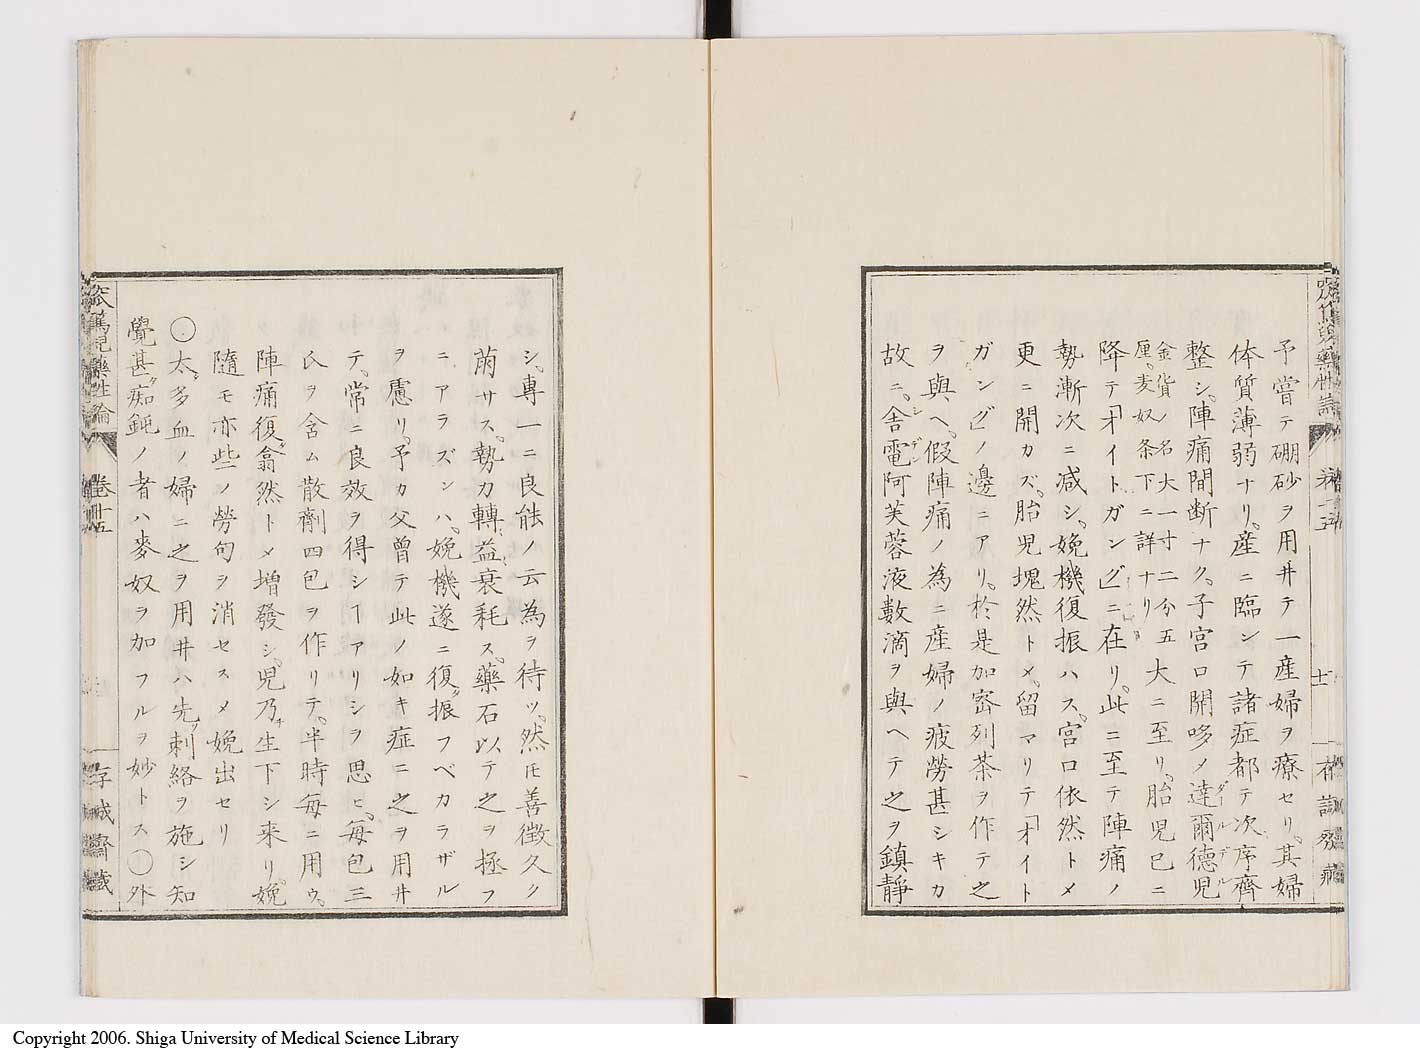 予嘗テ硼砂ヲ用井テ一産婦ヲ療セリ其婦
体質薄弱ナリ産ニ臨ンテ諸症都テ次序齊
整シ陣痛間断ナク子宮口開哆メ達爾德児
ダールデル
金貨ノ名大一寸二分五
厘麦奴条下ニ詳ナリ
大ニ至リ胎児已ニ
降テ「オイトガング」ニ在リ此ニ至テ陣痛ノ
勢漸次ニ減シ娩機復振ハス宮口依然トメ
更ニ開カズ胎児塊然トメ留マリテ「オイト
ガング」ノ邊ニアリ於是加密列茶ヲ作テ之
ヲ與ヘ假陣痛ノ為ニ産婦ノ疲勞甚シキカ
故ニ舎電阿芙蓉液數滴ヲ與ヘテ之ヲ鎮静
シ專一ニ良能ノ云為ヲ待ツ然𪜈善徴久ク
萠サス勢力轉益衰耗ス藥石以テ之ヲ拯フ
ニアラズンハ娩機遂ニ復振フベカラザル
ヲ慮リ予カ父曽テ此ノ如キ症ニ之ヲ用井
テ常ニ良效ヲ得シヿアリシヲ思ヒ毎包三
氏ヲ含ム散劑四包ヲ作リテ半時毎ニ用ウ
陣痛復翕然トメ増發シ児乃生下シ来リ娩
隨モ亦些ノ勞匈ヲ消セスメ娩出セリ
○太多血ノ婦ニ之ヲ用井ハ先刺絡ヲ施シ知
覺甚痴鈍ノ者ハ麥奴ヲ加フルヲ妙トス○外
窊篤児藥性論
卷十五